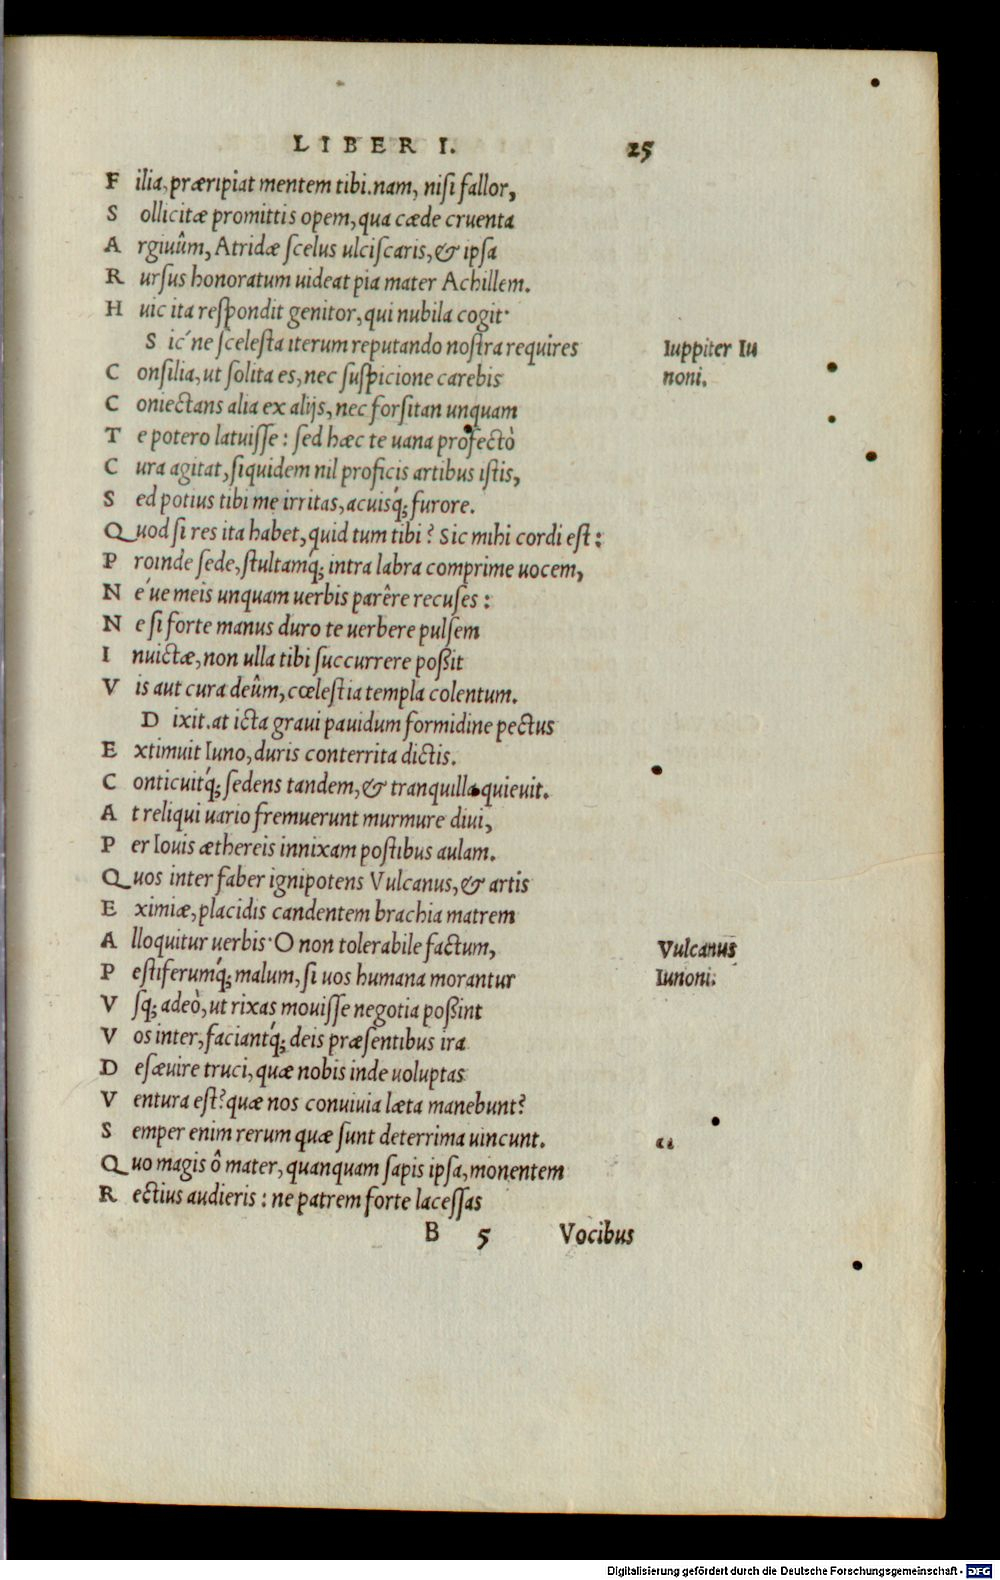 LIBER I. 25
Filia, præripiat mentem tibi. nam, nisi fallor,
Sollicitæ promittis opem, qua cæde cruenta
Argiuûm, Atridæ scelus ulciscaris, & ipsa
Rursus honoratum uideat pia mater Achillem.
Huic ita respondit genitor, qui nubila cogit·
Sic´ne scelesta iterum reputando nostra requires
Iuppiter Iu
Consilia, ut solita es, nec suspicione carebis
noni.
Coniectans alia ex alijs, nec forsitan unquam
Te potero latuisse : sed hæc te uana profectò
Cura agitat, siquidem nil proficis artibus istis,
Sed potius tibi me irritas, acuisq́; furore.
Quod si res ita habet, quid tum tibi? Sic mihi cordi est :
Proinde sede, stultamq́; intra labra comprime uocem,
Ne´ue meis unquam uerbis parêre recuses :
Ne si forte manus duro te uerbere pulsem
Inuictæ, non ulla tibi succurrere poßit
Vis aut cura deûm, cœlestia templa colentum.
Dixit. at icta graui pauidum formidine pectus
Extimuit Iuno, duris conterrita dictis.
Conticuitq́; sedens tandem, & tranquilla quieuit.
At reliqui uario fremuerunt murmure diui,
Per Iouis æthereis innixam postibus aulam.
Quos inter faber ignipotens Vulcanus, & artis
Eximiæ, placidis candentem brachia matrem
Alloquitur uerbis· O non tolerabile factum,
Vulcanus
Pestiferumq́; malum, si uos humana morantur
Iunoni.
Vsq; adeò, ut rixas mouisse negotia poßint
Vos inter, faciantq́; deis præsentibus ira
Desæuire truci, quæ nobis inde uoluptas
Ventura est? quæ nos conuiuia læta manebunt?
Semper enim rerum quæ sunt deterrima uincunt.
„
Quo magis ô mater, quanquam sapis ipsa, monentem
Rectius audieris : ne patrem forte lacessas
B 5 Vocibus
Digitalisierung gefördert durch die Deutsche Forschungsgemeinschaft - DFG